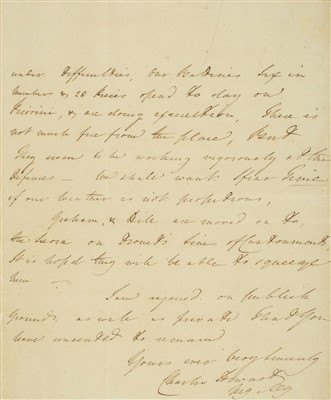 under difficulties, Our Batteries Six in
number & 28 Pieces opened to day on
& are doing execution, There is
not much fire from the place, But
They seem to be working vigorously at the
defences — We shall want Time
if our weather is not propitious,
Graham, & Hill are moved on to
the on line of Cantonments
It is hoped they will be able to squeeze
him —
I am rejoiced on publick
grounds as well as private that You
have consented to remain
Yours ever very sincerely
Charles Stewart